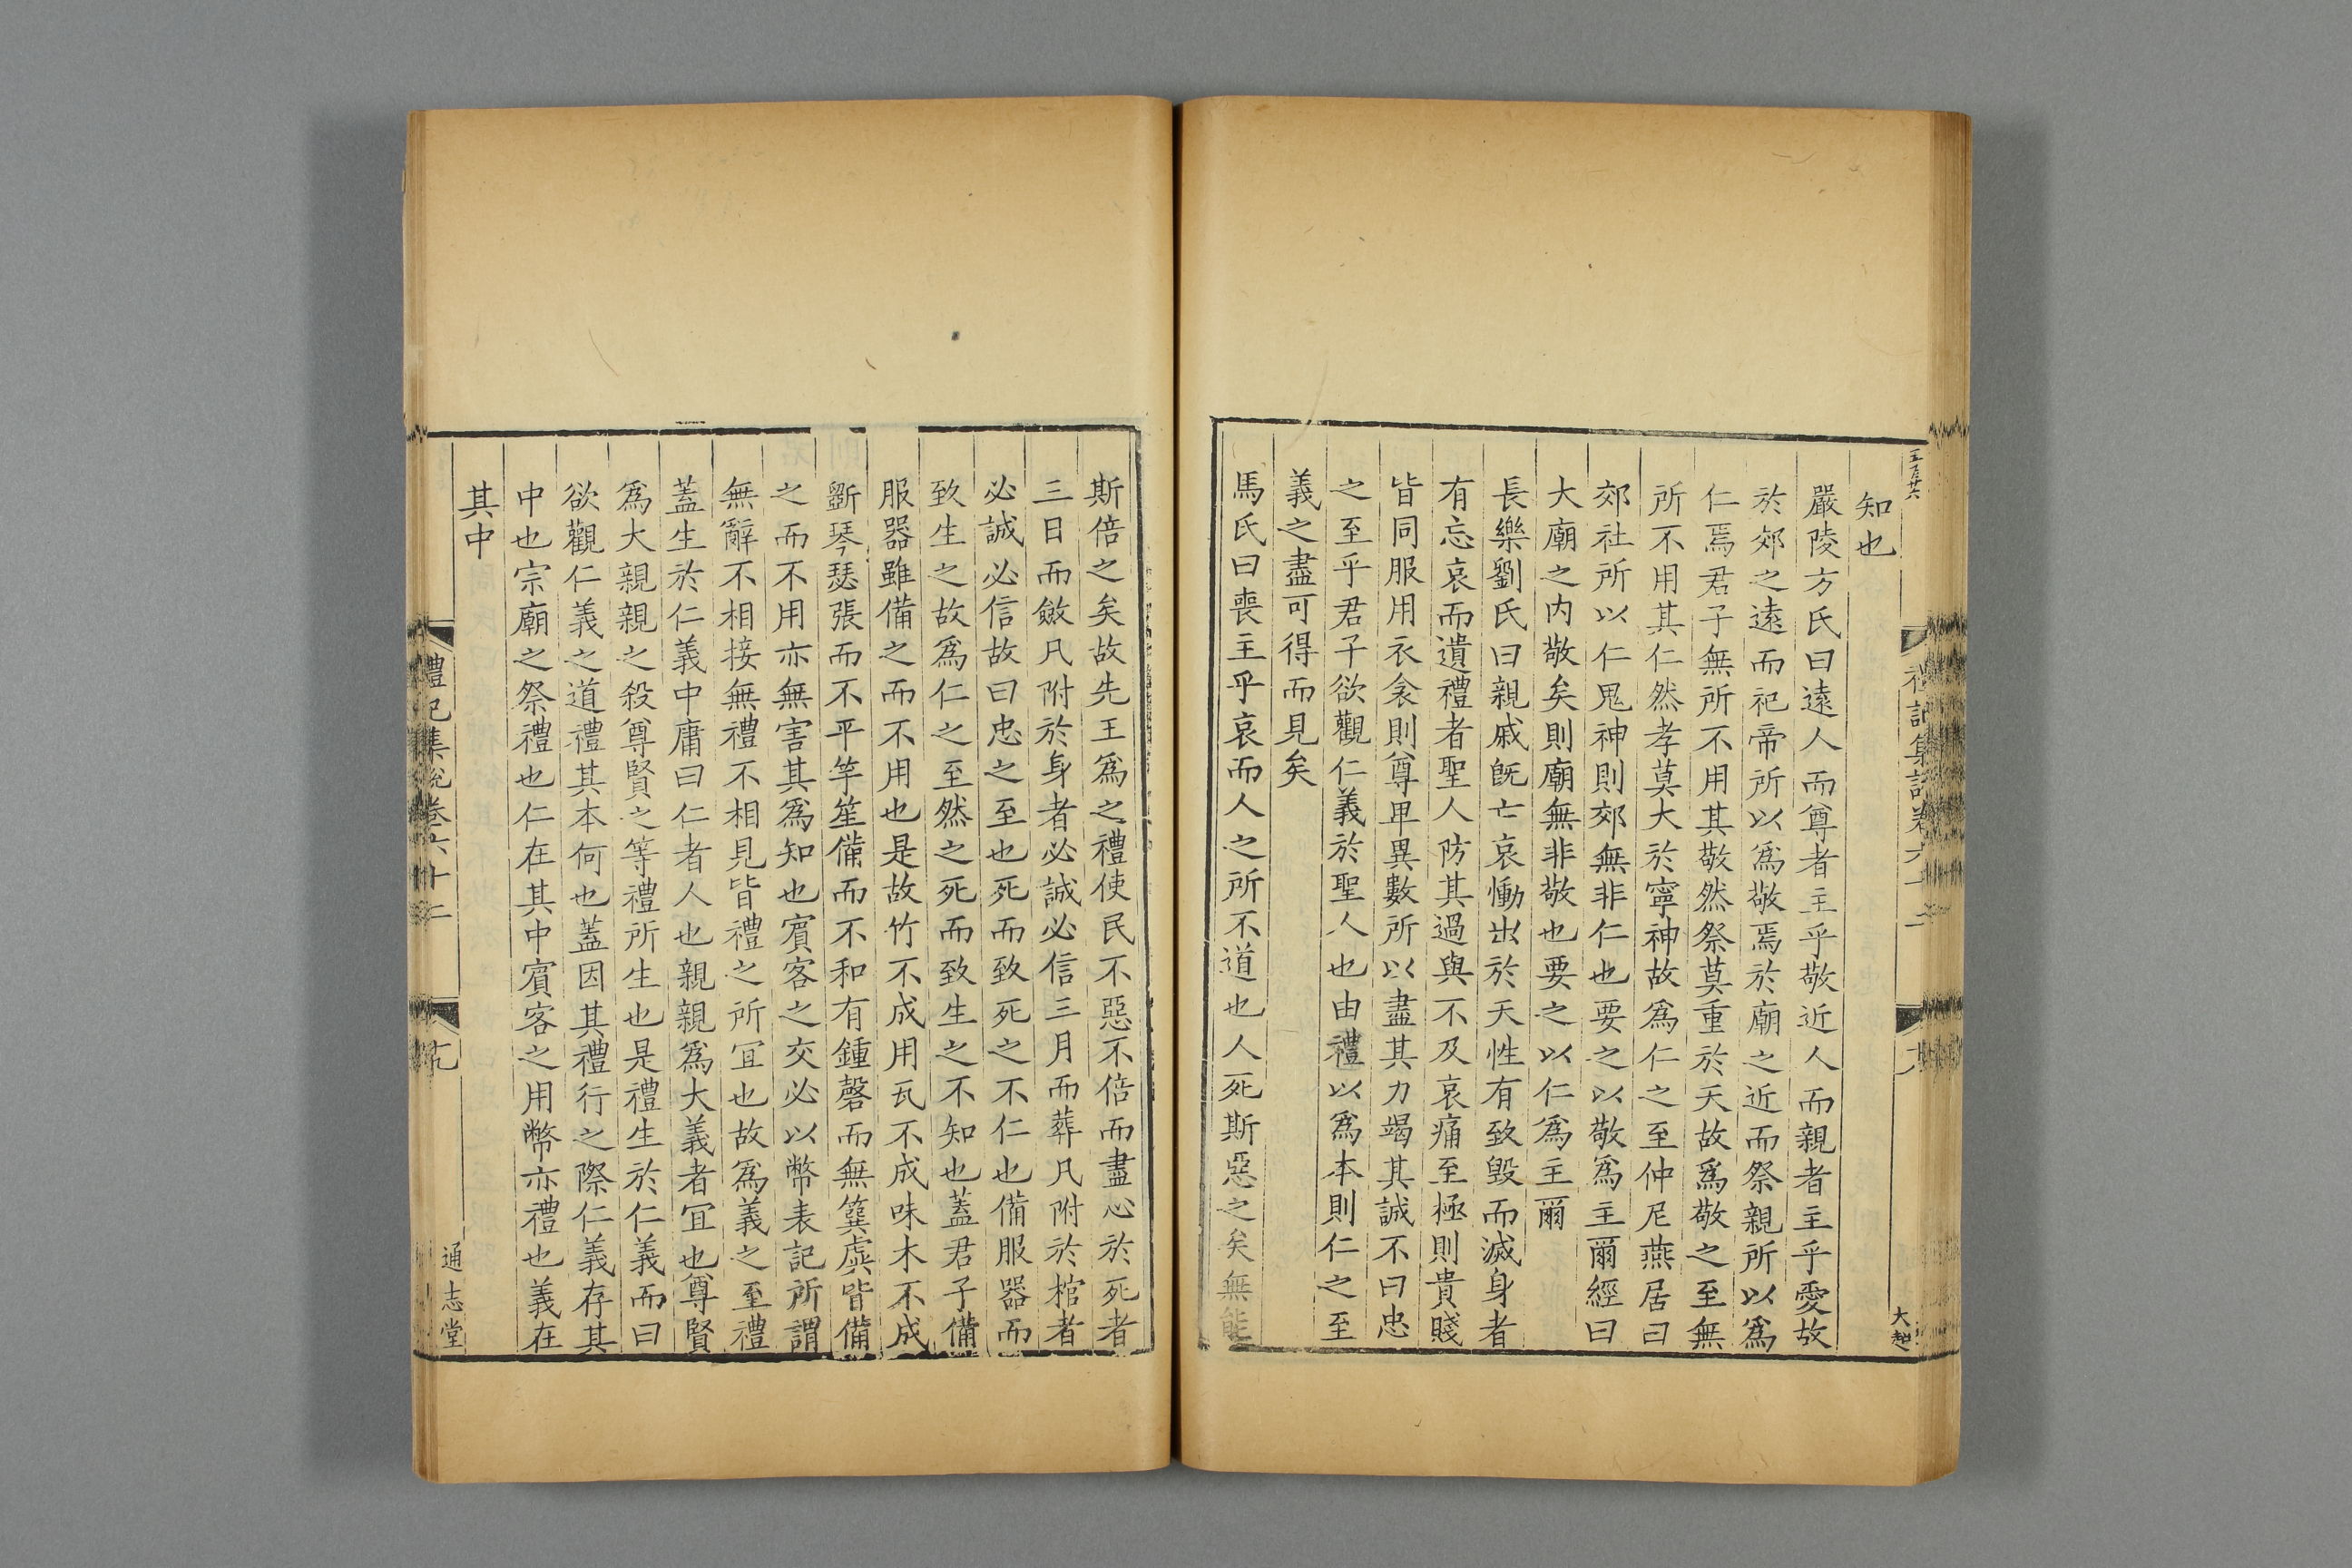 知也
嚴陵方氏曰遠人而尊者主乎敬近人而親者主乎愛故
於郊之遠而祀帝所以爲敬焉於廟之近而祭親所以爲
仁焉君子無所不用其敬然祭莫重於天故爲敬之至無
所不用其仁然孝莫大於寧神故爲仁之至仲尼燕居曰
郊社所以仁鬼神則郊無非仁也要之以敬爲主爾經曰
大廟之内敬矣則廟無非敬也要之以仁爲主爾
長樂劉氏曰親戚旣亡哀慟出於天性有致毀而滅身者
有忘哀而遺禮者聖人防其過與不及哀痛至極則貴賤
皆同服用衣衾則尊卑異數所以盡其力竭其誠不曰忠
之至乎君子欲觀仁義於聖人也由禮以爲本則仁之至
義之盡可得而見矣
馬氏曰喪主乎哀而人之所不道也人死斯惡之矣無能
大趙
斯倍之矣故先王爲之禮使民不惡不倍而盡心於死者
三日而斂凡附於身者必誠必信三月而葬凡附於棺者
必誠必信故曰忠之至也死而致死之不仁也備服器而
致生之故爲仁之至然之死而致生之不知也蓋君子備
服器雖備之而不用也是故竹不成用瓦不成味木不成
斵琴瑟張而不平竽笙備而不和有鍾磬而無簨虡皆備
之而不用亦無害其爲知也賓客之交必以幣表記所謂
無辭不相接無禮不相見皆禮之所宜也故爲義之至禮
蓋生於仁義中庸曰仁者人也親親爲大義者宜也尊賢
爲大親親之殺尊賢之等禮所生也是禮生於仁義而曰
欲觀仁義之道禮其本何也蓋因其禮行之際仁義存其
中也宗廟之祭禮也仁在其中賓客之用幣亦禮也義在
其中
禮記集說卷六十二
通志堂